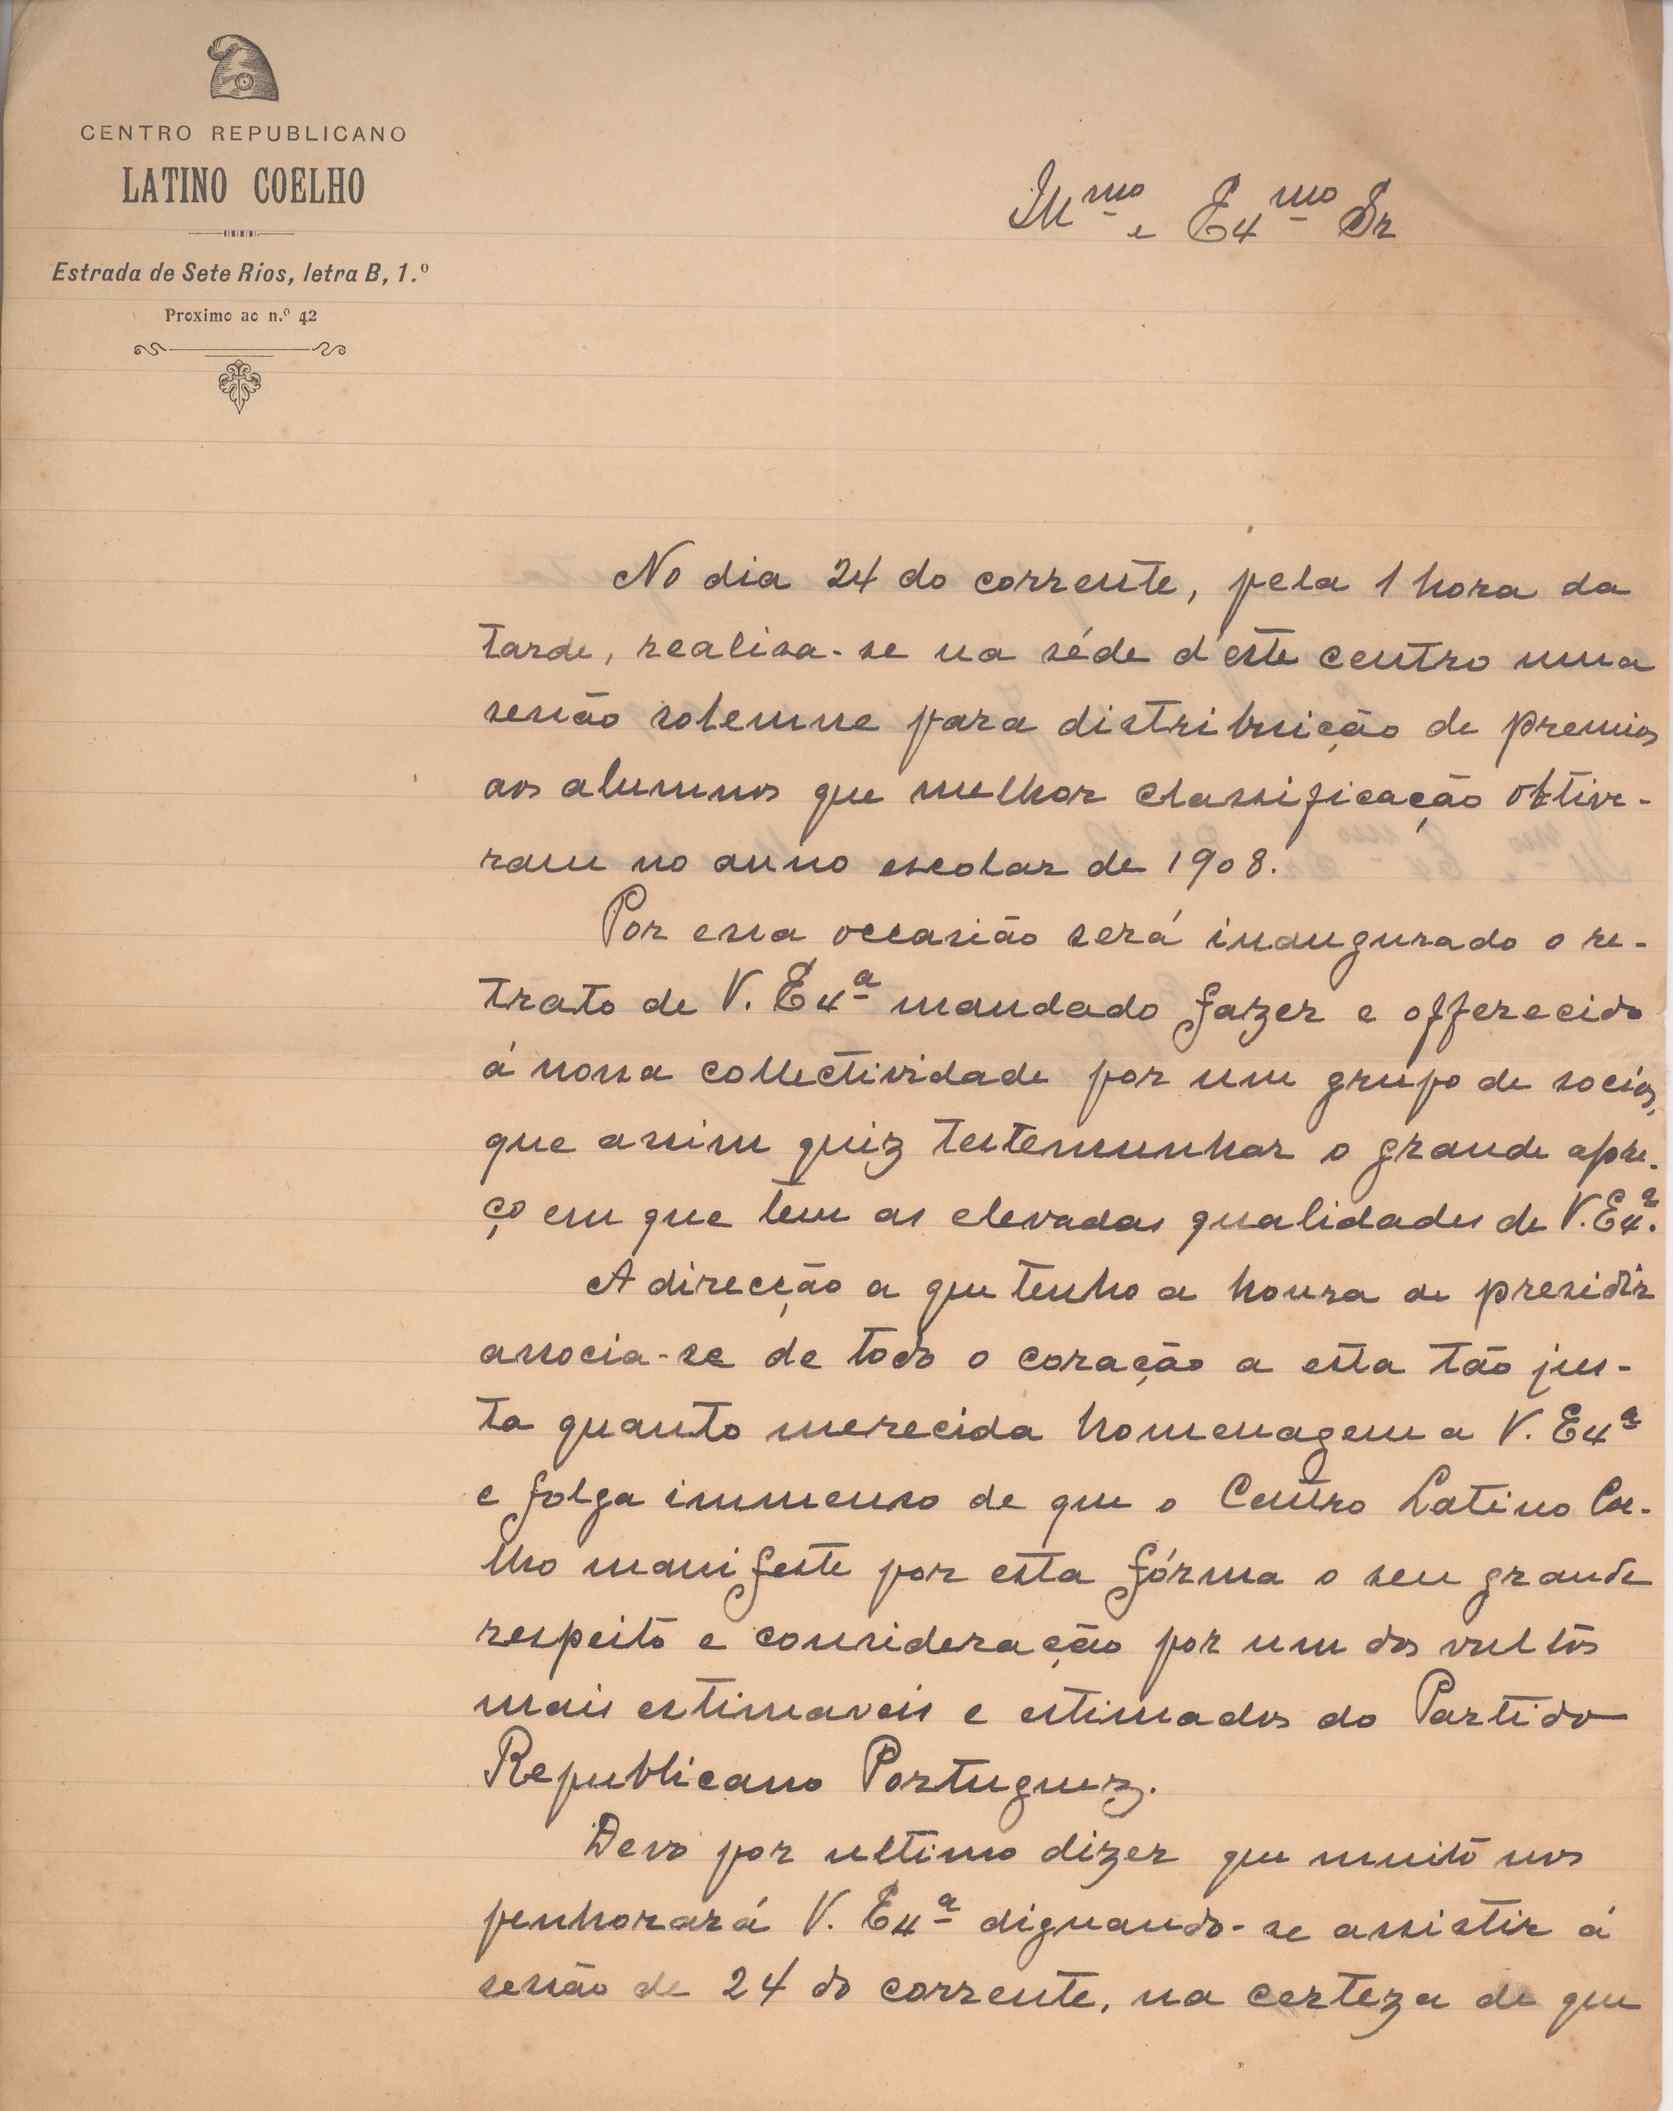 CENTRO REPUBLICANO
LATINO COELHO
Estrada de Sete Rios, letra B, 1.º
Proximo ao n.º 42
Illmo e Exmo Sr
No dia 24 do corrente, pela 1 hora da
tarde, realisa-se na séde d'este centro uma
sessão solemne para distribuição de premios
aos alumnos que melhor classificação obtive-
ram no anno escolar de 1908.
Por essa occasião será inaugurado o re-
trato de V. Exª mandado fazer e offerecido
á nossa collectividade por um grupo de socios,
que assim quiz testemunhar o grande apre-
ço em que tem as elevadas qualidades de V. Exª.
A direcção a que tenho a honra de presidir
associa-se de todo o coração a esta tão jus-
ta quanto merecida homenagem a V. Exª
e folga immenso de que o Centro Latino Coe-
lho manifeste por esta fórma o seu grande
respeito e consideração por um dos vultos
mais estimaveis e estimados do Partido
Republicano Portuguez.
Devo por ultimo dizer que muito nos
penhorará V. Exª dignando-se assistir á
sessão de 24 do corrente, na certeza de que